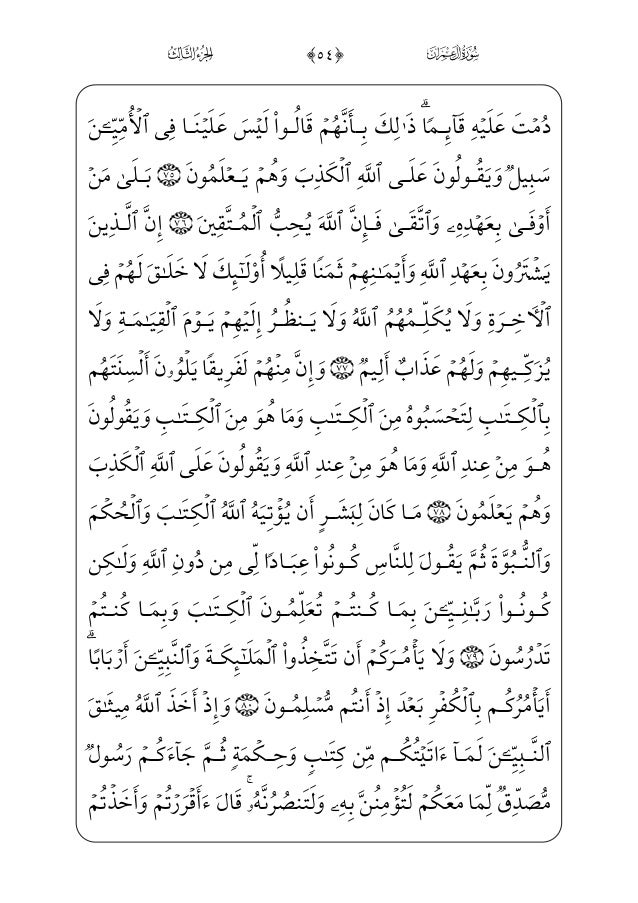 سُورَةُ آلِ عِمْرَانَ ﴿٥٤﴾ الجُزْءُ الثَّالِثُ
دُمۡتَ عَلَيۡهِ قَآئِمٗاۗ ذَٰلِكَ بِأَنَّهُمۡ قَالُواْ لَيۡسَ عَلَيۡنَا فِي ٱلۡأُمِّيِّـۧنَ
سَبِيلٞ وَيَقُولُونَ عَلَى ٱللَّهِ ٱلۡكَذِبَ وَهُمۡ يَعۡلَمُونَ ٧٥ بَلَىٰ مَنۡ
أَوۡفَىٰ بِعَهۡدِهِۦ وَٱتَّقَىٰ فَإِنَّ ٱللَّهَ يُحِبُّ ٱلۡمُتَّقِينَ ٧٦ إِنَّ ٱلَّذِينَ
يَشۡتَرُونَ بِعَهۡدِ ٱللَّهِ وَأَيۡمَٰنِهِمۡ ثَمَنٗا قَلِيلًا أُوْلَٰٓئِكَ لَا خَلَٰقَ لَهُمۡ فِي
ٱلۡأٓخِرَةِ وَلَا يُكَلِّمُهُمُ ٱللَّهُ وَلَا يَنظُرُ إِلَيۡهِمۡ يَوۡمَ ٱلۡقِيَٰمَةِ وَلَا
يُزَكِّيهِمۡ وَلَهُمۡ عَذَابٌ أَلِيمٞ ٧٧ وَإِنَّ مِنۡهُمۡ لَفَرِيقٗا يَلۡوُۥنَ أَلۡسِنَتَهُم
بِٱلۡكِتَٰبِ لِتَحۡسَبُوهُ مِنَ ٱلۡكِتَٰبِ وَمَا هُوَ مِنَ ٱلۡكِتَٰبِ وَيَقُولُونَ
هُوَ مِنۡ عِندِ ٱللَّهِ وَمَا هُوَ مِنۡ عِندِ ٱللَّهِ وَيَقُولُونَ عَلَى ٱللَّهِ ٱلۡكَذِبَ
وَهُمۡ يَعۡلَمُونَ ٧٨ مَا كَانَ لِبَشَرٍ أَن يُؤۡتِيَهُ ٱللَّهُ ٱلۡكِتَٰبَ وَٱلۡحُكۡمَ
وَٱلنُّبُوَّةَ ثُمَّ يَقُولَ لِلنَّاسِ كُونُواْ عِبَادٗا لِّي مِن دُونِ ٱللَّهِ وَلَٰكِن
كُونُواْ رَبَّٰنِيِّـۧنَ بِمَا كُنتُمۡ تُعَلِّمُونَ ٱلۡكِتَٰبَ وَبِمَا كُنتُمۡ
تَدۡرُسُونَ ٧٩ وَلَا يَأۡمُرَكُمۡ أَن تَتَّخِذُواْ ٱلۡمَلَٰٓئِكَةَ وَٱلنَّبِيِّـۧنَ أَرۡبَابًاۗ
أَيَأۡمُرُكُم بِٱلۡكُفۡرِ بَعۡدَ إِذۡ أَنتُم مُّسۡلِمُونَ ٨٠ وَإِذۡ أَخَذَ ٱللَّهُ مِيثَٰقَ
ٱلنَّبِيِّـۧنَ لَمَآ ءَاتَيۡتُكُم مِّن كِتَٰبٖ وَحِكۡمَةٖ ثُمَّ جَآءَكُمۡ رَسُولٞ
مُّصَدِّقٞ لِّمَا مَعَكُمۡ لَتُؤۡمِنُنَّ بِهِۦ وَلَتَنصُرُنَّهُۥۚ قَالَ ءَأَقۡرَرۡتُمۡ وَأَخَذۡتُمۡ